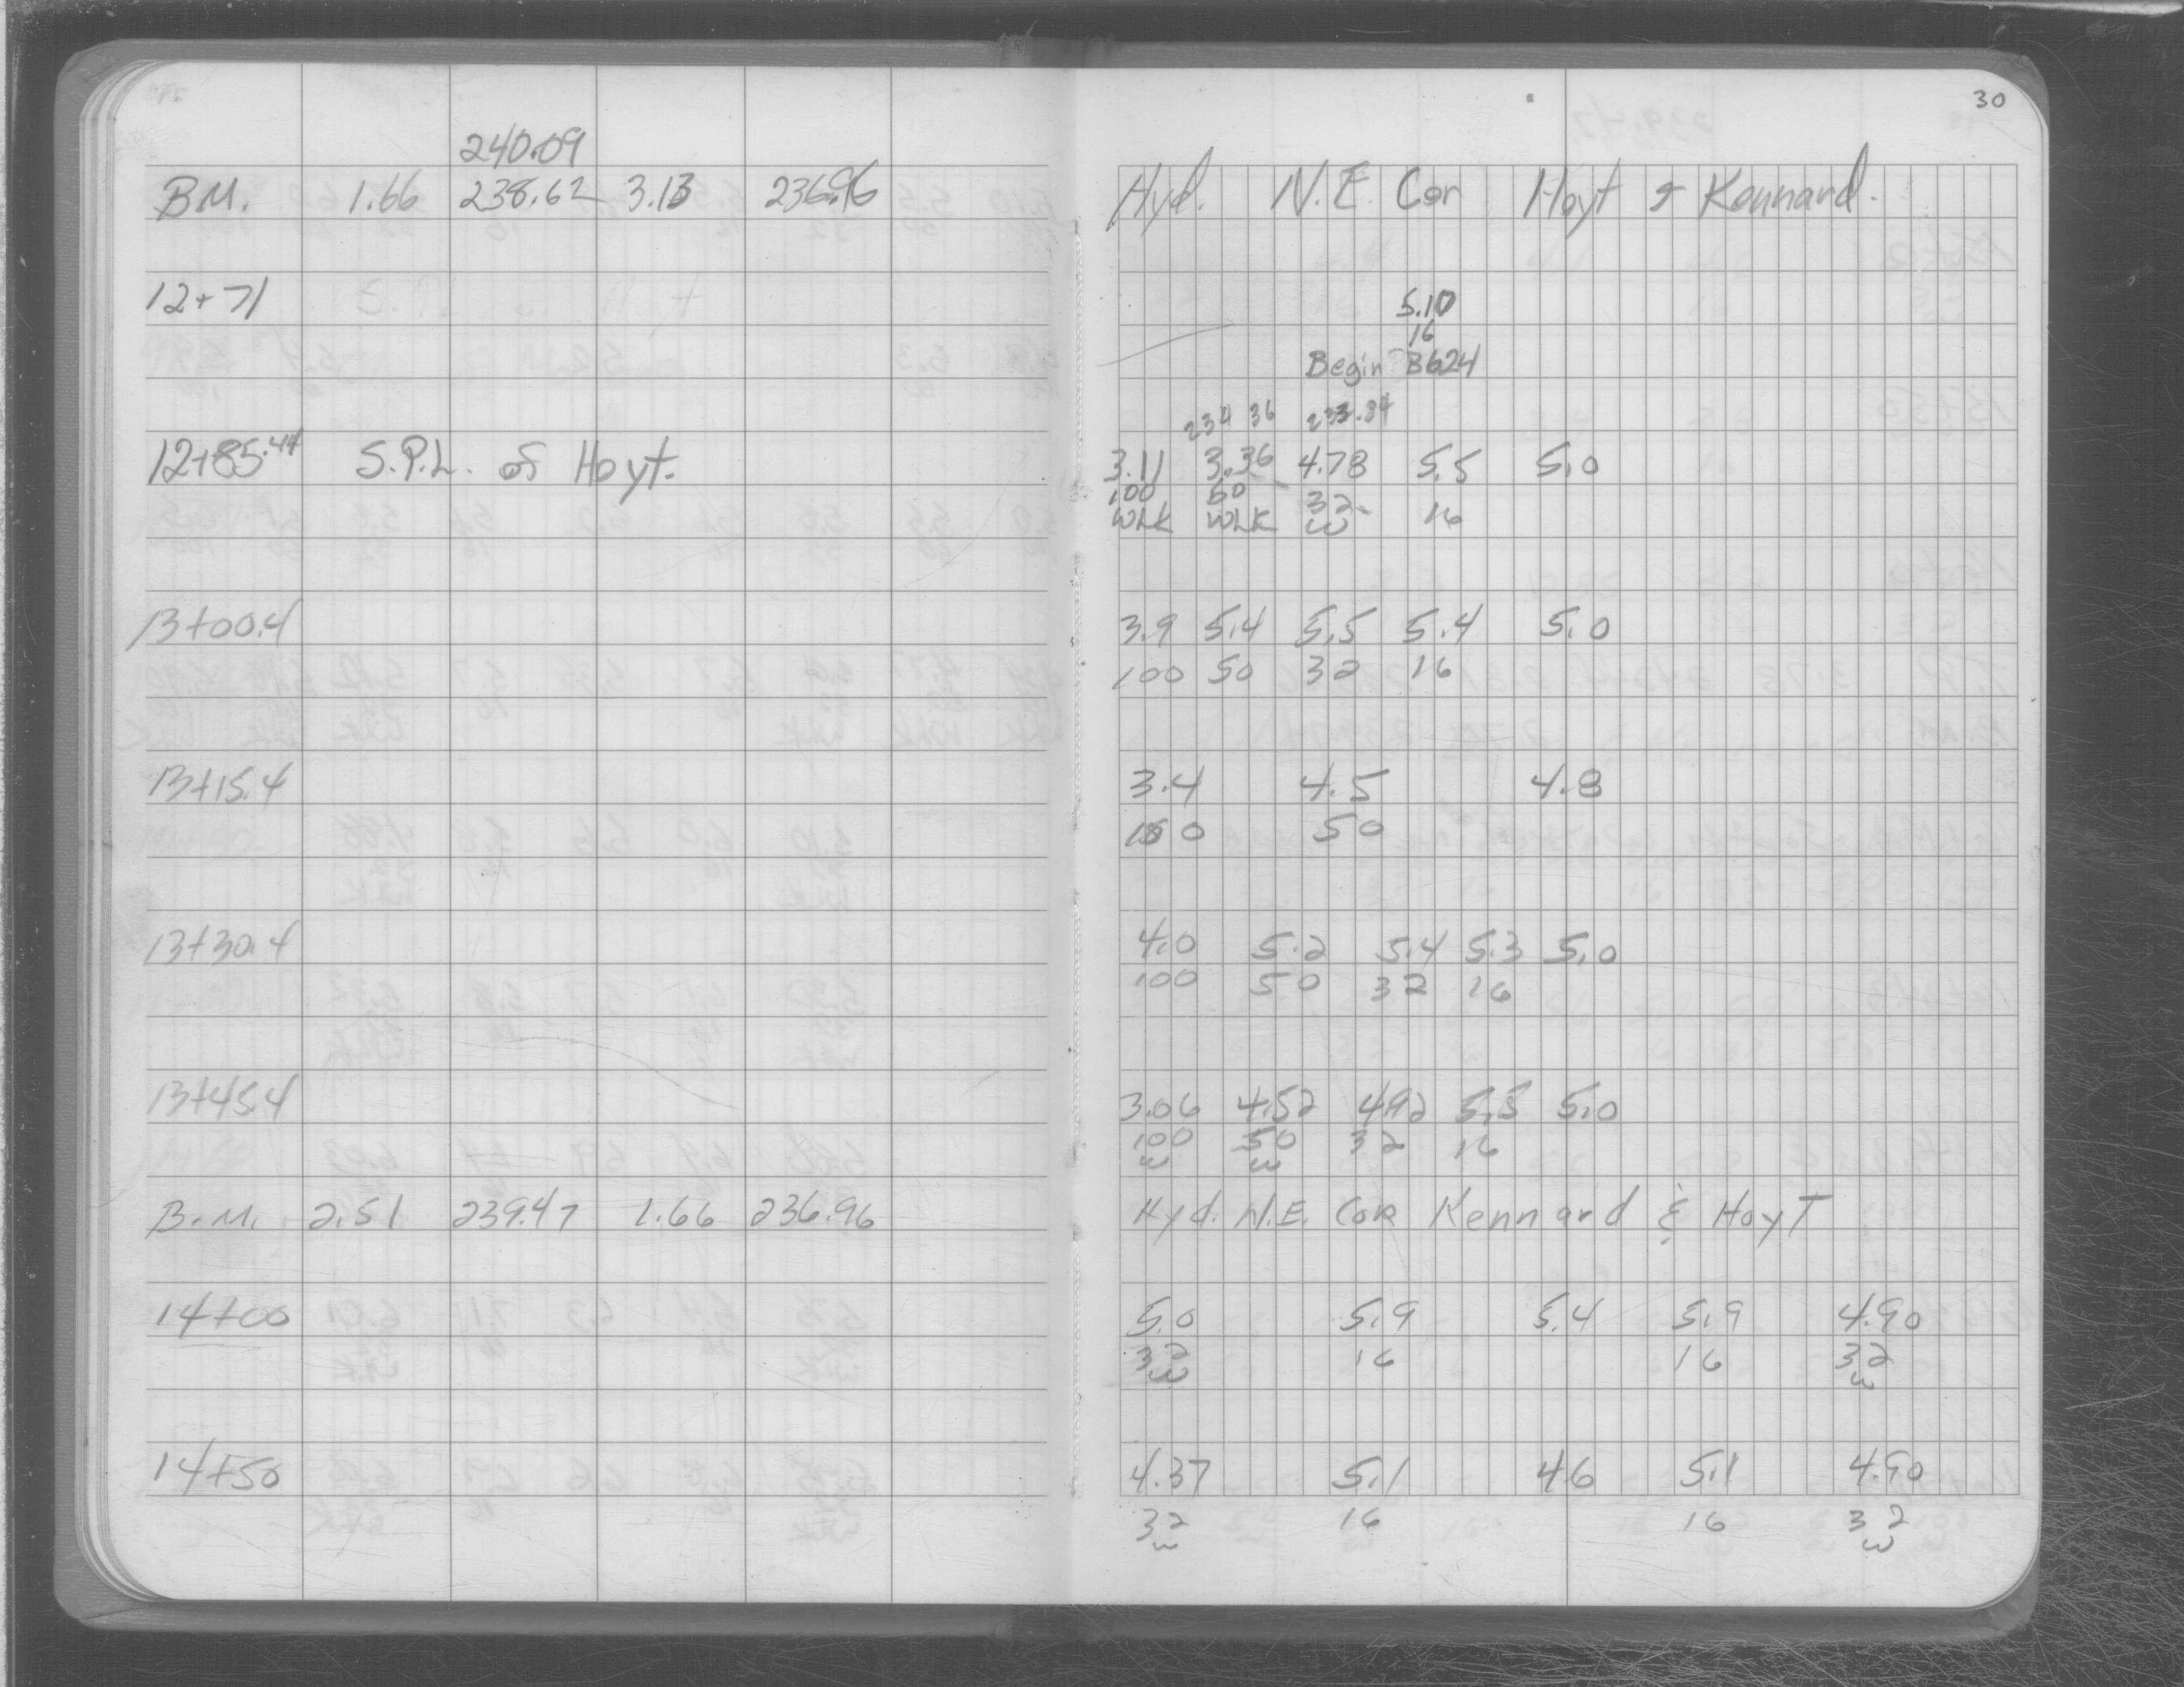 30
240.09
B.M. 1.66 238.62 3.13 236.96 Hyd. N.E. Cor Hoyt & Kennard.
12+71 5.10
16
Begin B624
234 36 233.84
12+85.44 S.P.L. of Hoyt. 3.11 3.36 4.78 5.5 5.0
100 50 32 16
WLK WLK W
13+00.4 3.9 5.4 5.5 5.4 5.0
100 50 32 16
13+15.4 3.4 4.5 4.8
100 50
13+30.4 4.0 5.2 5.4 5.3 5.0
100 50 32 16
13+45.4 3.06 4.52 4.92 5.5 5.0
100 50 32 16
W W
B.M. 2.51 239.47 1.66 236.96 Hyd. N.E. Cor Kennard & Hoyt
14+00 5.0 5.9 5.4 5.9 4.90
32 16 16 32
W W
14+50 4.37 5.1 4.6 5.1 4.90
32 16 16 32
W W